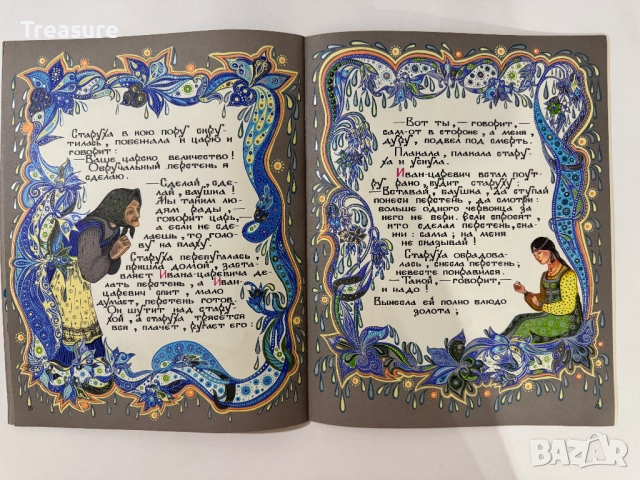 Treasure
Старуха в ною пору скру-
тилась, побежала к царю и
говорит:
—Ваше царско величество!
Обручальный перстень я
сделаю.
—Сделай, сде-
лай, бабушка!
Мы таким лю-
дям рады,—
говорит царь,—
а если не сде-
лаешь, то голо-
ву на плаху.
Старуха перепугалась,
пришла домой, заста-
вляет Ивана-царевича де-
лать перстень, а Иван-
царевич спит, мало
думает, перстень готов.
Он шутит над стару-
хой, а старуха трясется
вся, плачет, ругает его:
—Вот ты,— говорит,—
сам-от в стороне, а меня,
дуру, подвел под смерть.
Плакала, плакала стару-
ха и уснула.
Иван-царевич встал поут-
ру рано, будит старуху:
—Вставай, бабушка, да ступай
понеси перстень, да смотри:
больше одного червонца за
него не бери. если спросят,
кто сделал перстень, ска-
жи: сама; на меня
не сказывай!
Старуха обрадова-
лась, снесла перстень;
невесте понравился.
—Такой,—говорит,—
и надо!
Вынесла ей полно блюдо
золота;
BAZAR